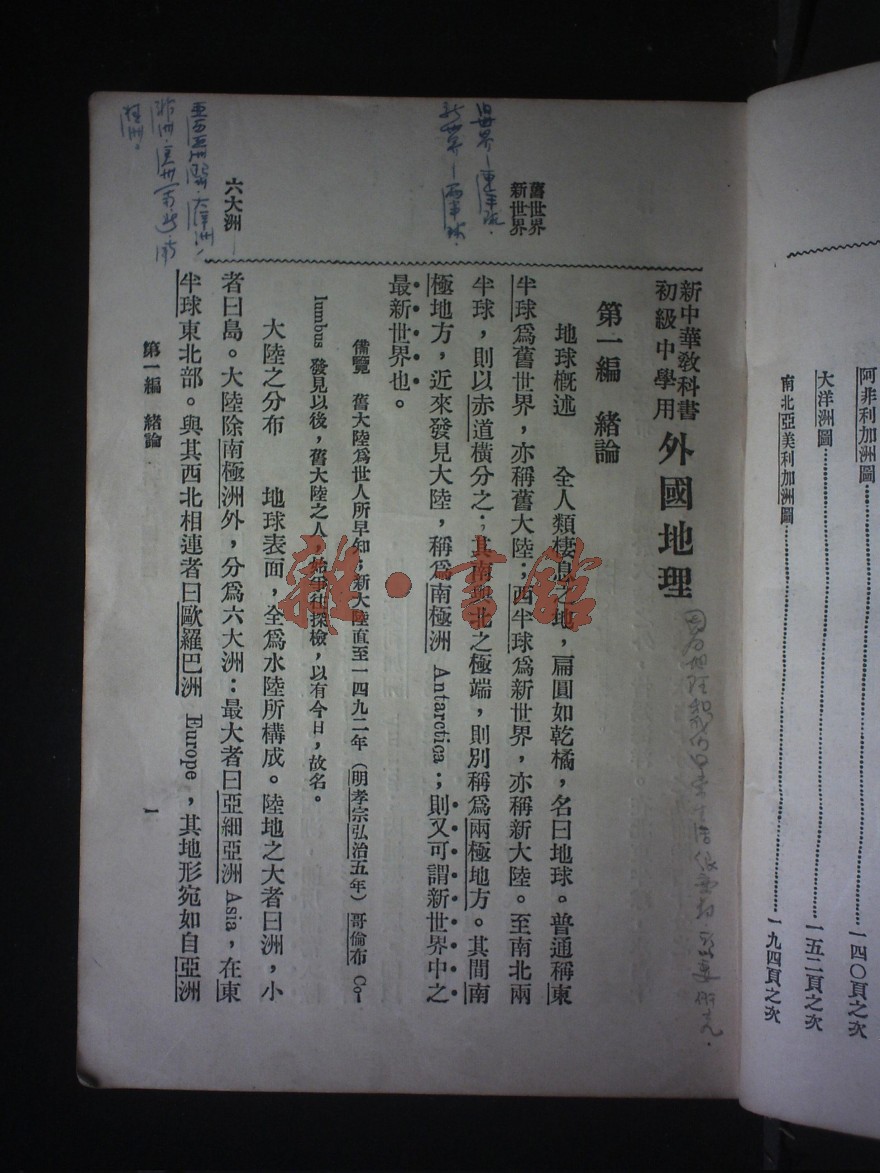 阿非利加洲圖……一四〇頁之次
大洋洲圖……一五二頁之次
南北亞美利加洲圖……一九四頁之次
新中華敎科書
初級中學用
外國地理
第一編 緒論
地球槪述 全人類棲息之地，扁圓如乾橘，名曰地球。普通稱東
半球爲舊世界，亦稱舊大陸；西半球爲新世界，亦稱新大陸。至南北兩
半球，則以赤道橫分之；其南與北之極端，則別稱爲兩極地方。其間南
極地方，近來發見大陸，稱爲南極洲 Antarctica；則又可謂新世界中之
最新世界也。
備覽 舊大陸爲世人所早知；新大陸直至一四九二年（明孝宗弘治五年）哥倫布 Co-
lumbus 發見以後，舊大陸之人，始爭往探檢，以有今日，故名。
大陸之分布 地球表面，全爲水陸所構成。陸地之大者曰洲，小
者曰島。大陸除南極洲外，分爲六大洲：最大者曰亞細亞洲 Asia，在東
半球東北部。與其西北相連者曰歐羅巴洲 Europe，其地形宛如自亞洲
舊世界
新世界
六大洲
第一編 緒論
一
舊世界—東半球．
新世界—西半球．
雜·書館